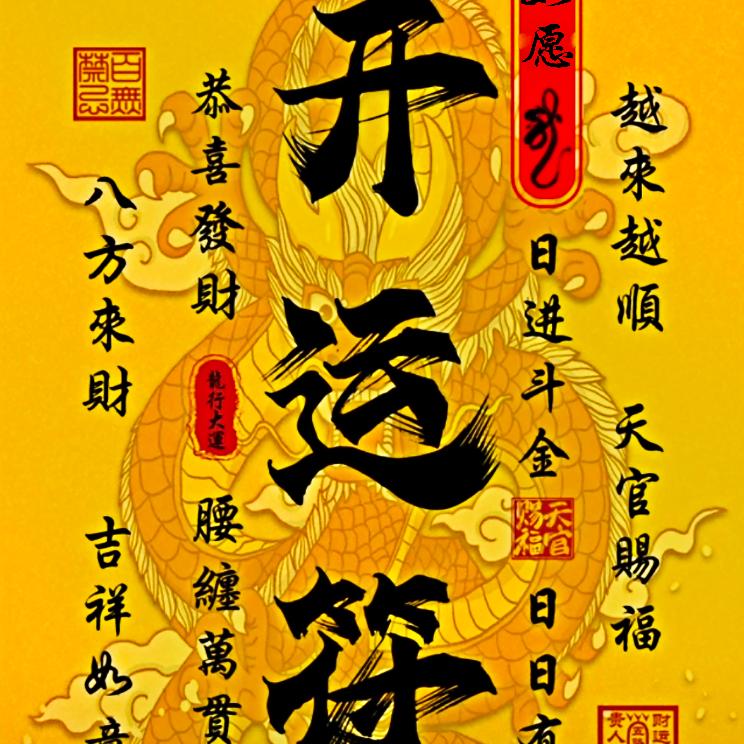 越來越順
天官賜福
愿
日进斗金
天官
賜福
日日有
财运
贵人
开运符
恭喜發財
龍行大運
腰纏萬貫
百無
禁忌
八方來財
吉祥如意